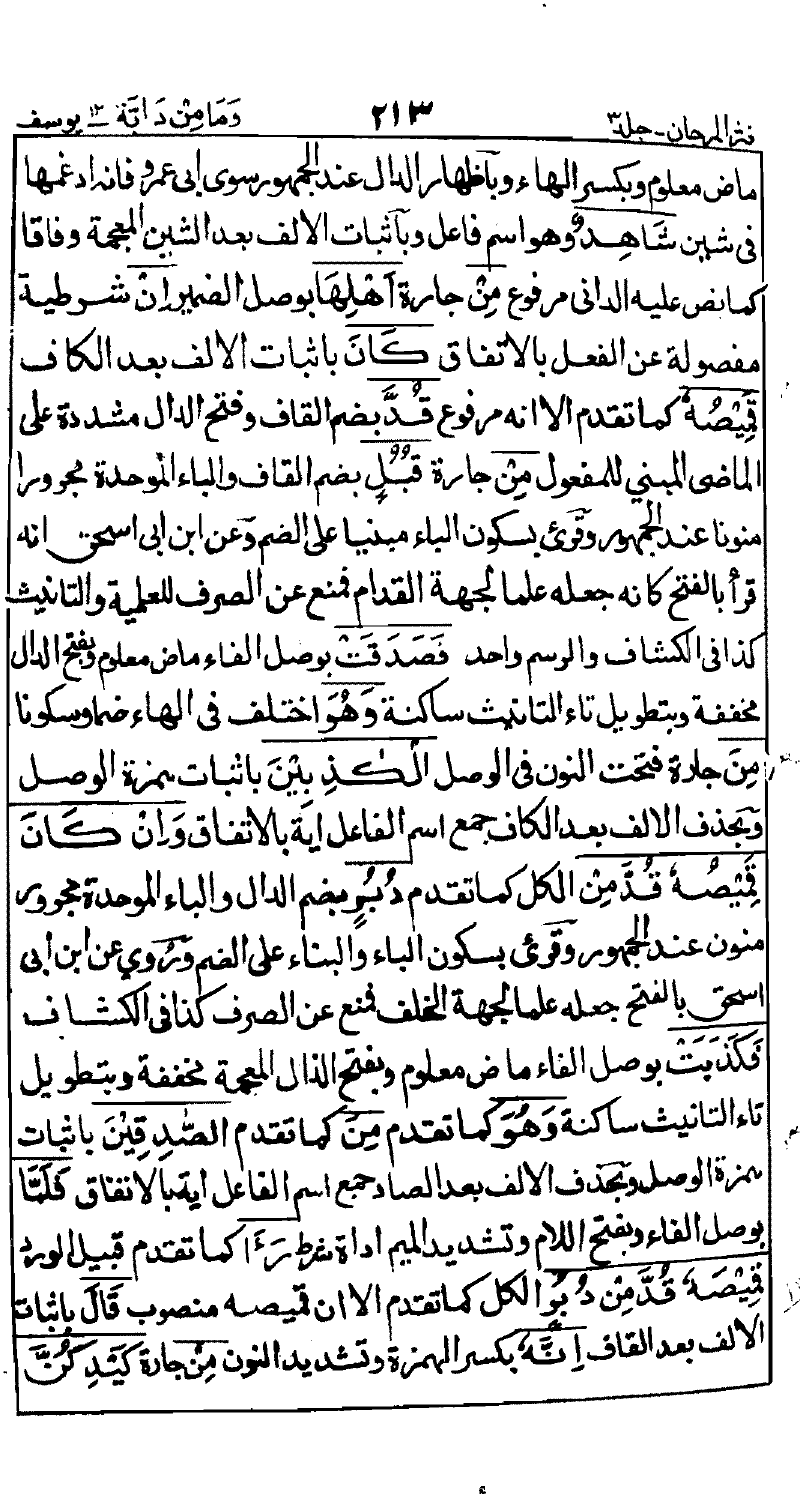 نثر المرجان - جلد ٣ ٢١٣ وَمَا مِنْ دَابَّة ١٢ يوسف
ماض معلوم وبكسر الهاء وباظهار الدال عند الجمهور سوى ابى عمرو فانه ادغمها
فى شين شَاهِدٌ وهو اسم فاعل وباثبات الالف بعد الشين المعجمة وفاقا
كما نص عليه الدانى مرفوع مِنْ جارة اَهْلِهَا بوصل الضمير اِنْ شرطية
مفصولة عن الفعل بالاتفاق كَانَ باثبات الالف بعد الكاف
قَمِيْصُهٗ كما تقدم الا انه مرفوع قُدَّ بضم القاف وفتح الدال مشددة على
الماضى المبني للمفعول مِنْ جارة قُبُلٍ بضم القاف والباء الموحدة مجرورا
منونا عند الجمهور وقرئ بسكون الباء مبنيا على الضم وعن ابن ابى اسحق انه
قرأ بالفتح كانه جعله علما لجهة القدام فمنع عن الصرف للعلمية والتانيث
كذا فى الكشاف والرسم واحد فَصَدَقَتْ بوصل الفاء ماض معلوم وبفتح الدال
مخففة وبتطويل تاء التانيث ساكنة وَهُوَ اختلف فى الهاء ضما وسكونا
مِنَ جارة فتحت النون فى الوصل الْكٰذِبِيْنَ باثبات همزة الوصل
وبحذف الالف بعد الكاف جمع اسم الفاعل اية بالاتفاق وَاِنْ كَانَ
قَمِيْصُهٗ قُدَّ مِنْ الكل كما تقدم دُبُرٍ بضم الدال والباء الموحدة مجرور
منون عند الجمهور وقرئ بسكون الباء والبناء على الضم وروي عن ابن ابى
اسحق بالفتح جعله علما لجهة الخلف فمنع عن الصرف كذا فى الكشاف
فَكَذَبَتْ بوصل الفاء ماض معلوم وبفتح الذال المعجمة مخففة وبتطويل
تاء التانيث ساكنة وَهُوَ كما تقدم مِنَ كما تقدم الصّٰدِقِيْنَ باثبات
همزة الوصل وبحذف الالف بعد الصاد جمع اسم الفاعل اية بالاتفاق فَلَمَّا
بوصل الفاء وبفتح اللام وتشديد الميم اداة شرط رَءَا كما تقدم قبيل الورد
قَمِيْصَهٗ قُدَّ مِنْ دُبُرٍ الكل كما تقدم الا ان قميصه منصوب قَالَ باثبات
الالف بعد القاف اِنَّهٗ بكسر الهمزة وتشديد النون مِنْ جارة كَيْدِكُنَّ